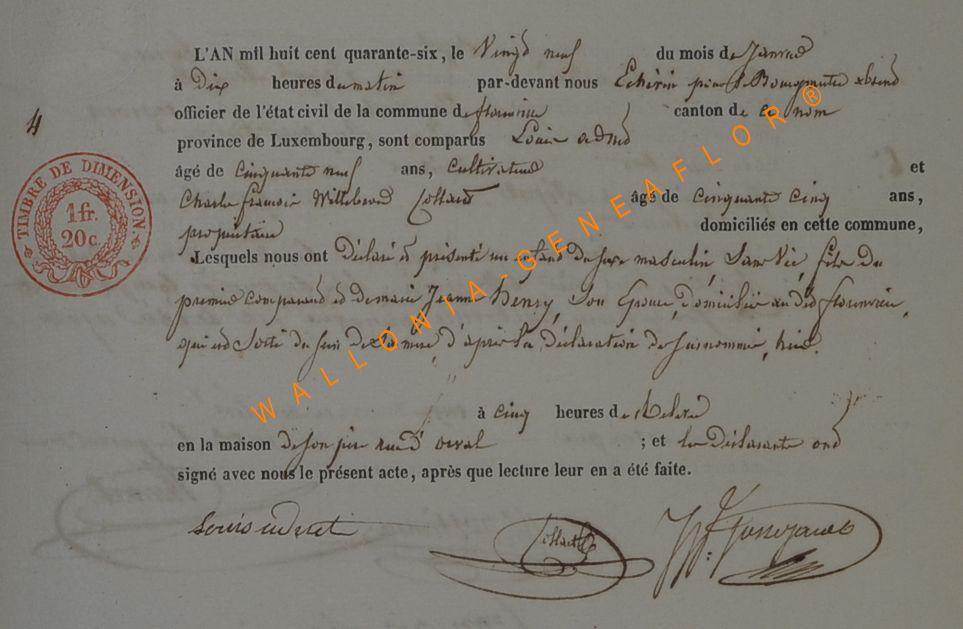 L'AN mil huit cent quarante-six, le Vingt neuf du mois de Janvier
à Dix heures du matin par-devant nous Echevin pour le Bourgmestre absent
officier de l'état civil de la commune de florenville canton de ce nom
province de Luxembourg, sont comparus Louis
âgé de cinquante neuf ans, Cultivateur et
Charle francois Willebrord Collard âgé de cinquante cinq ans,
propriétaire domiciliés en cette commune,
Lesquels nous ont déclaré et présenté un enfant du sexe masculin, Sans Vie, fils du
premier comparant et de marie Jeanne Henry, son épouse, domiciliés au dit florenville,
qui est sorti du sein de sa mère, d'après la déclaration des susnommés, hier
à cinq heures de relevé
en la maison de son père rue d'orval ; et les déclarants ont
signé avec nous le présent acte, après que lecture leur en a été faite.
Louis Collard
4
TIMBRE DE DIMENSION
1 fr.
20 c.
WALLONIA-GENEAFLOR®